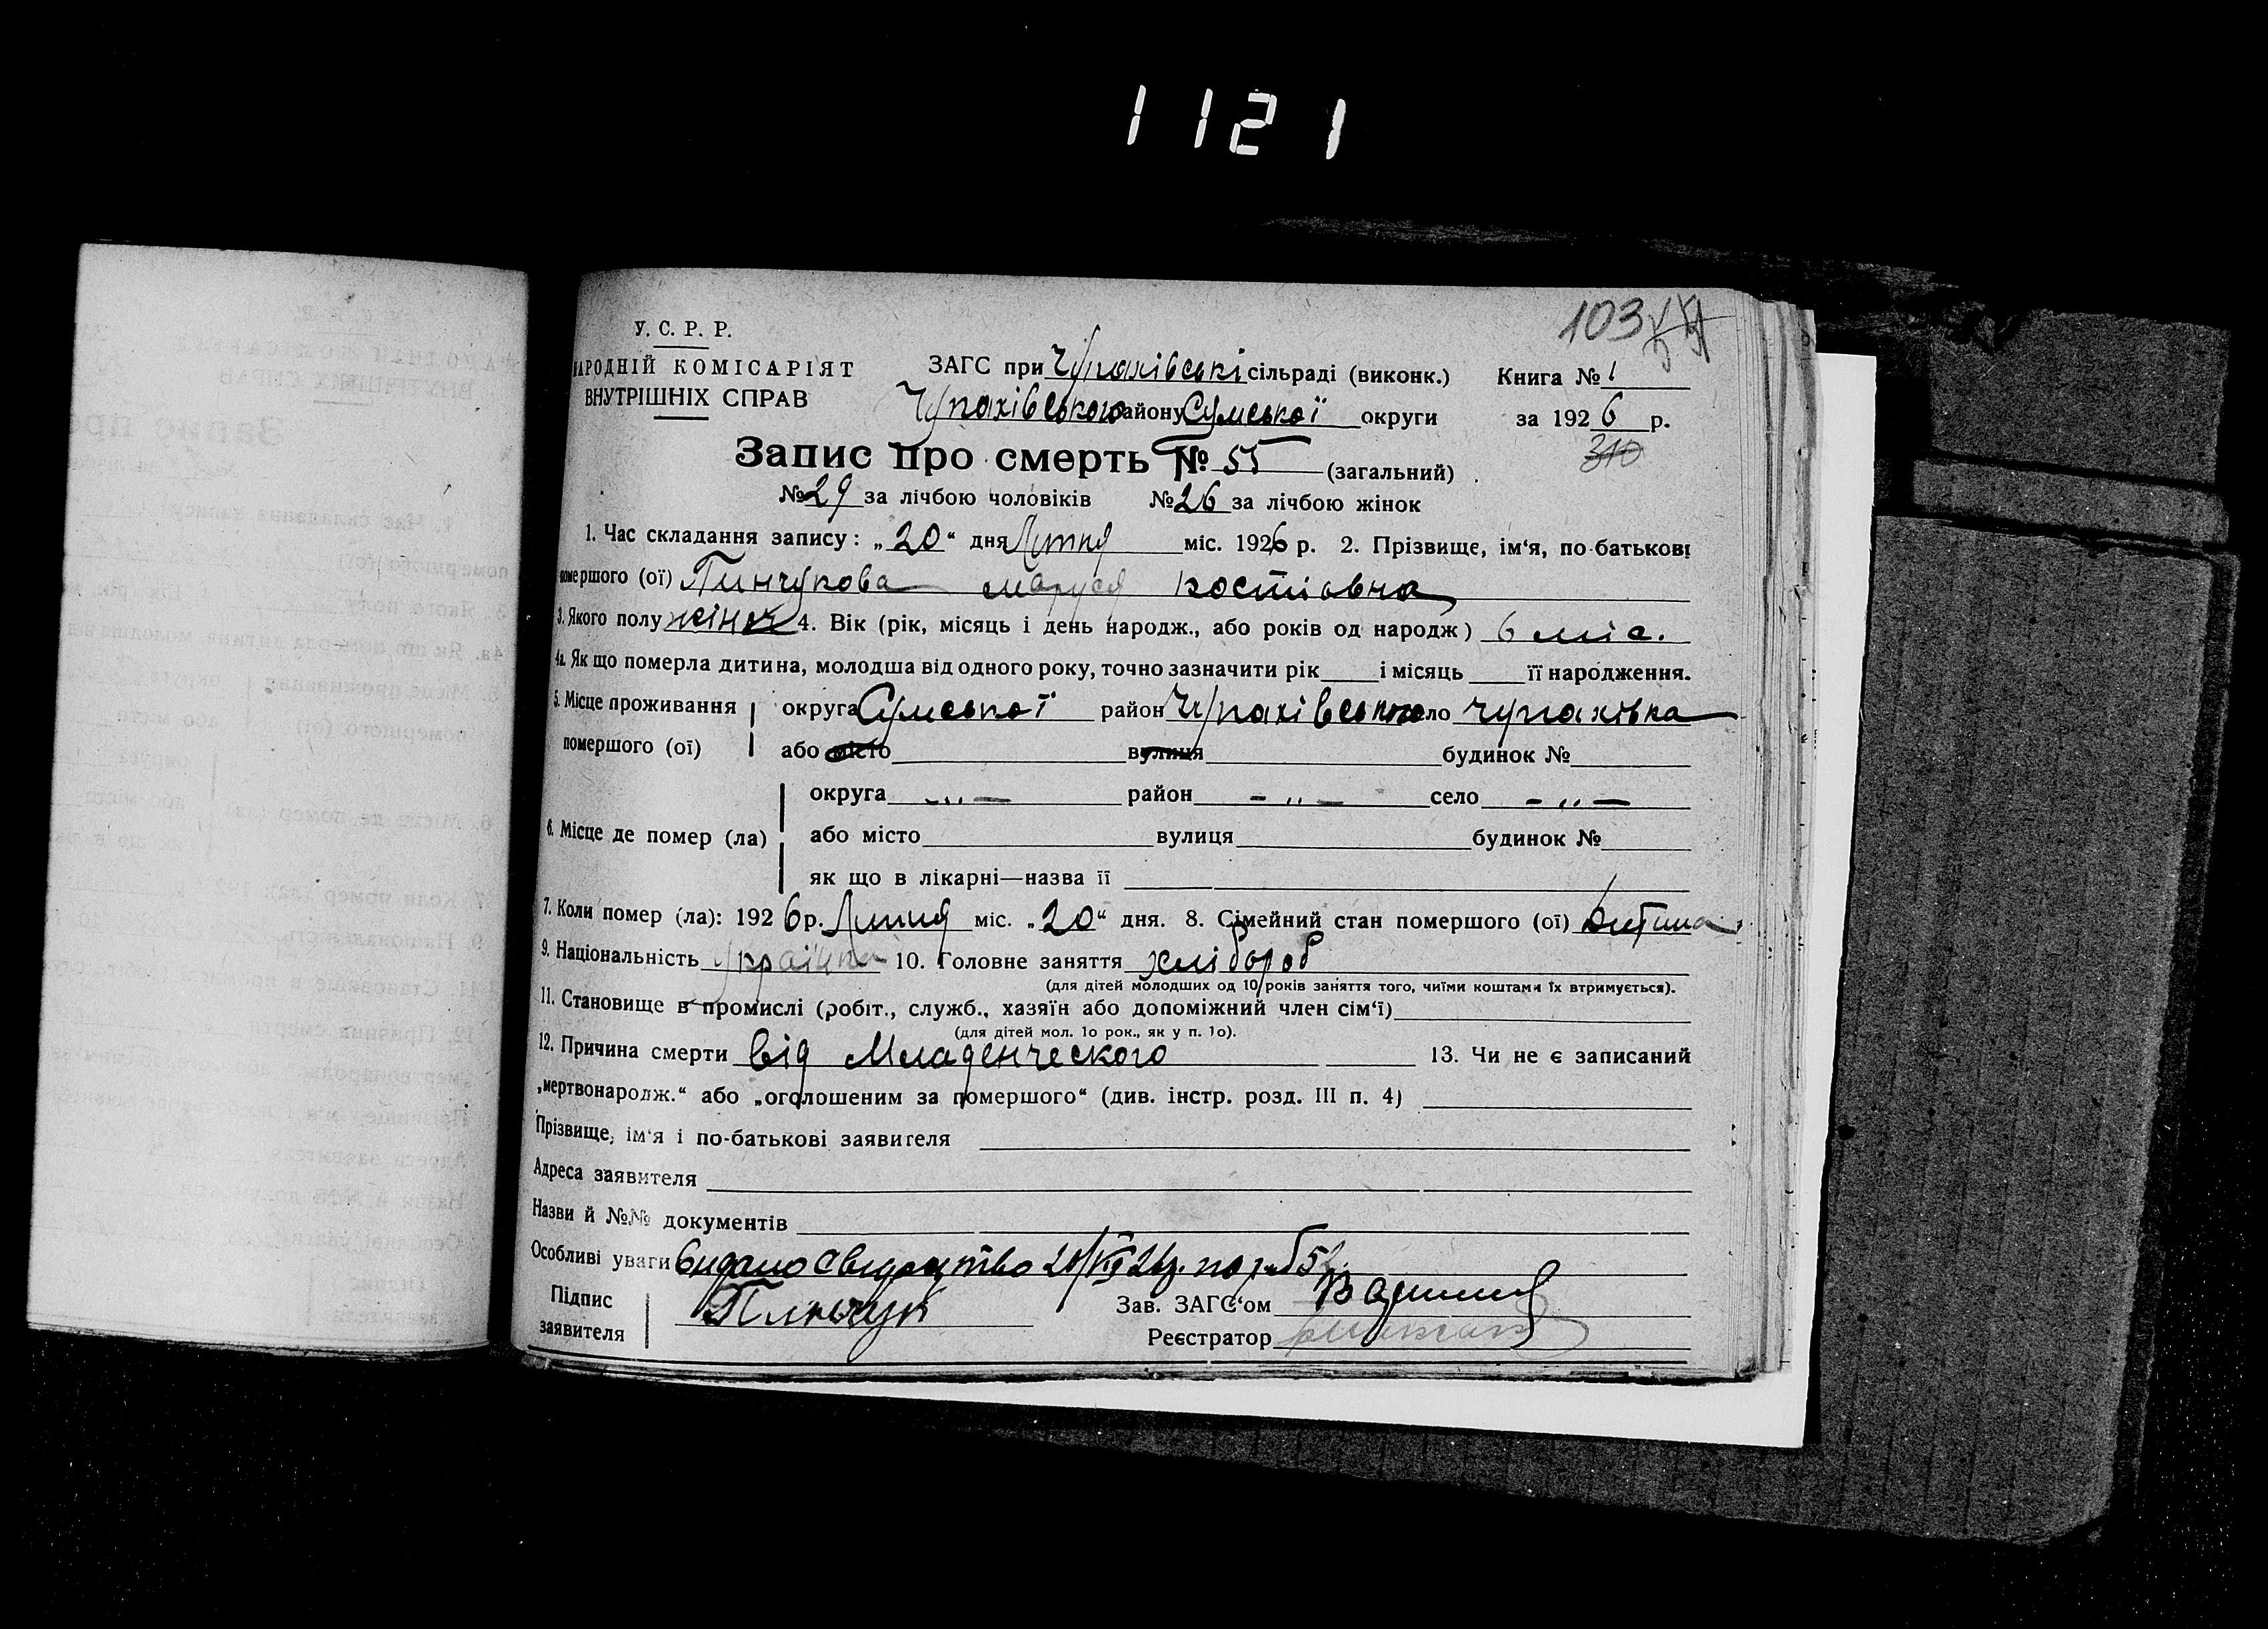 1121
103
У. С. Р. Р.
НАРОДНІЙ КОМІСАРІЯТ
ВНУТРІШНІХ СПРАВ
ЗАГС при Чупахівські сільраді (виконк.) Книга № 1
Чупахівського району Сумської округи за 1926 р.
310
Запис про смерть № 55 (загальний)
№ 29 за лічбою чоловіків № 26 за лічбою жінок
1. Час складання запису: „20“ дня Липня міс. 1926 р. 2. Прізвище, ім‘я, по-батькові
помершого (ої) Пинчукова Маруся Костіовна
3. Якого полу жіноч 4. Вік (рік, місяць і день народж., або років од народж) 6 міс.
4а. Як що померла дитина, молодша від одного року, точно зазначити рік і місяць її народження.
5. Місце проживання округа Сумської район Чупахівського село Чупахівка
помершого (ої) або місто вулиця будинок №
округа -„- район -„- село -„-
6. Місце де помер (ла) або місто вулиця будинок №
як що в лікарні—назва її
7. Коли помер (ла): 1926 р. Липня міс. „20“ дня. 8. Сімейний стан помершого (ої) дитина
9. Національність Українка 10. Головне заняття хлібороб
(для дітей молодших од 10 років заняття того, чиїми коштами їх втримується).
11. Становище в промислі (робіт., служб., хазяїн або допоміжний член сім‘ї)
(для дітей мол. 1о рок., як у п. 1о).
12. Причина смерти від Младенческого 13. Чи не є записаний
„мертвонародж.“ або „оголошеним за помершого“ (див. інстр. розд. III п. 4)
Прізвище, ім‘я і по-батькові заявителя
Адреса заявителя
Назви й №№ документів
Особливі уваги Видано свидоцтво 20/VII 26р. по
Підпис Пінчук Зав. ЗАГС‘ом
заявителя Реєстратор